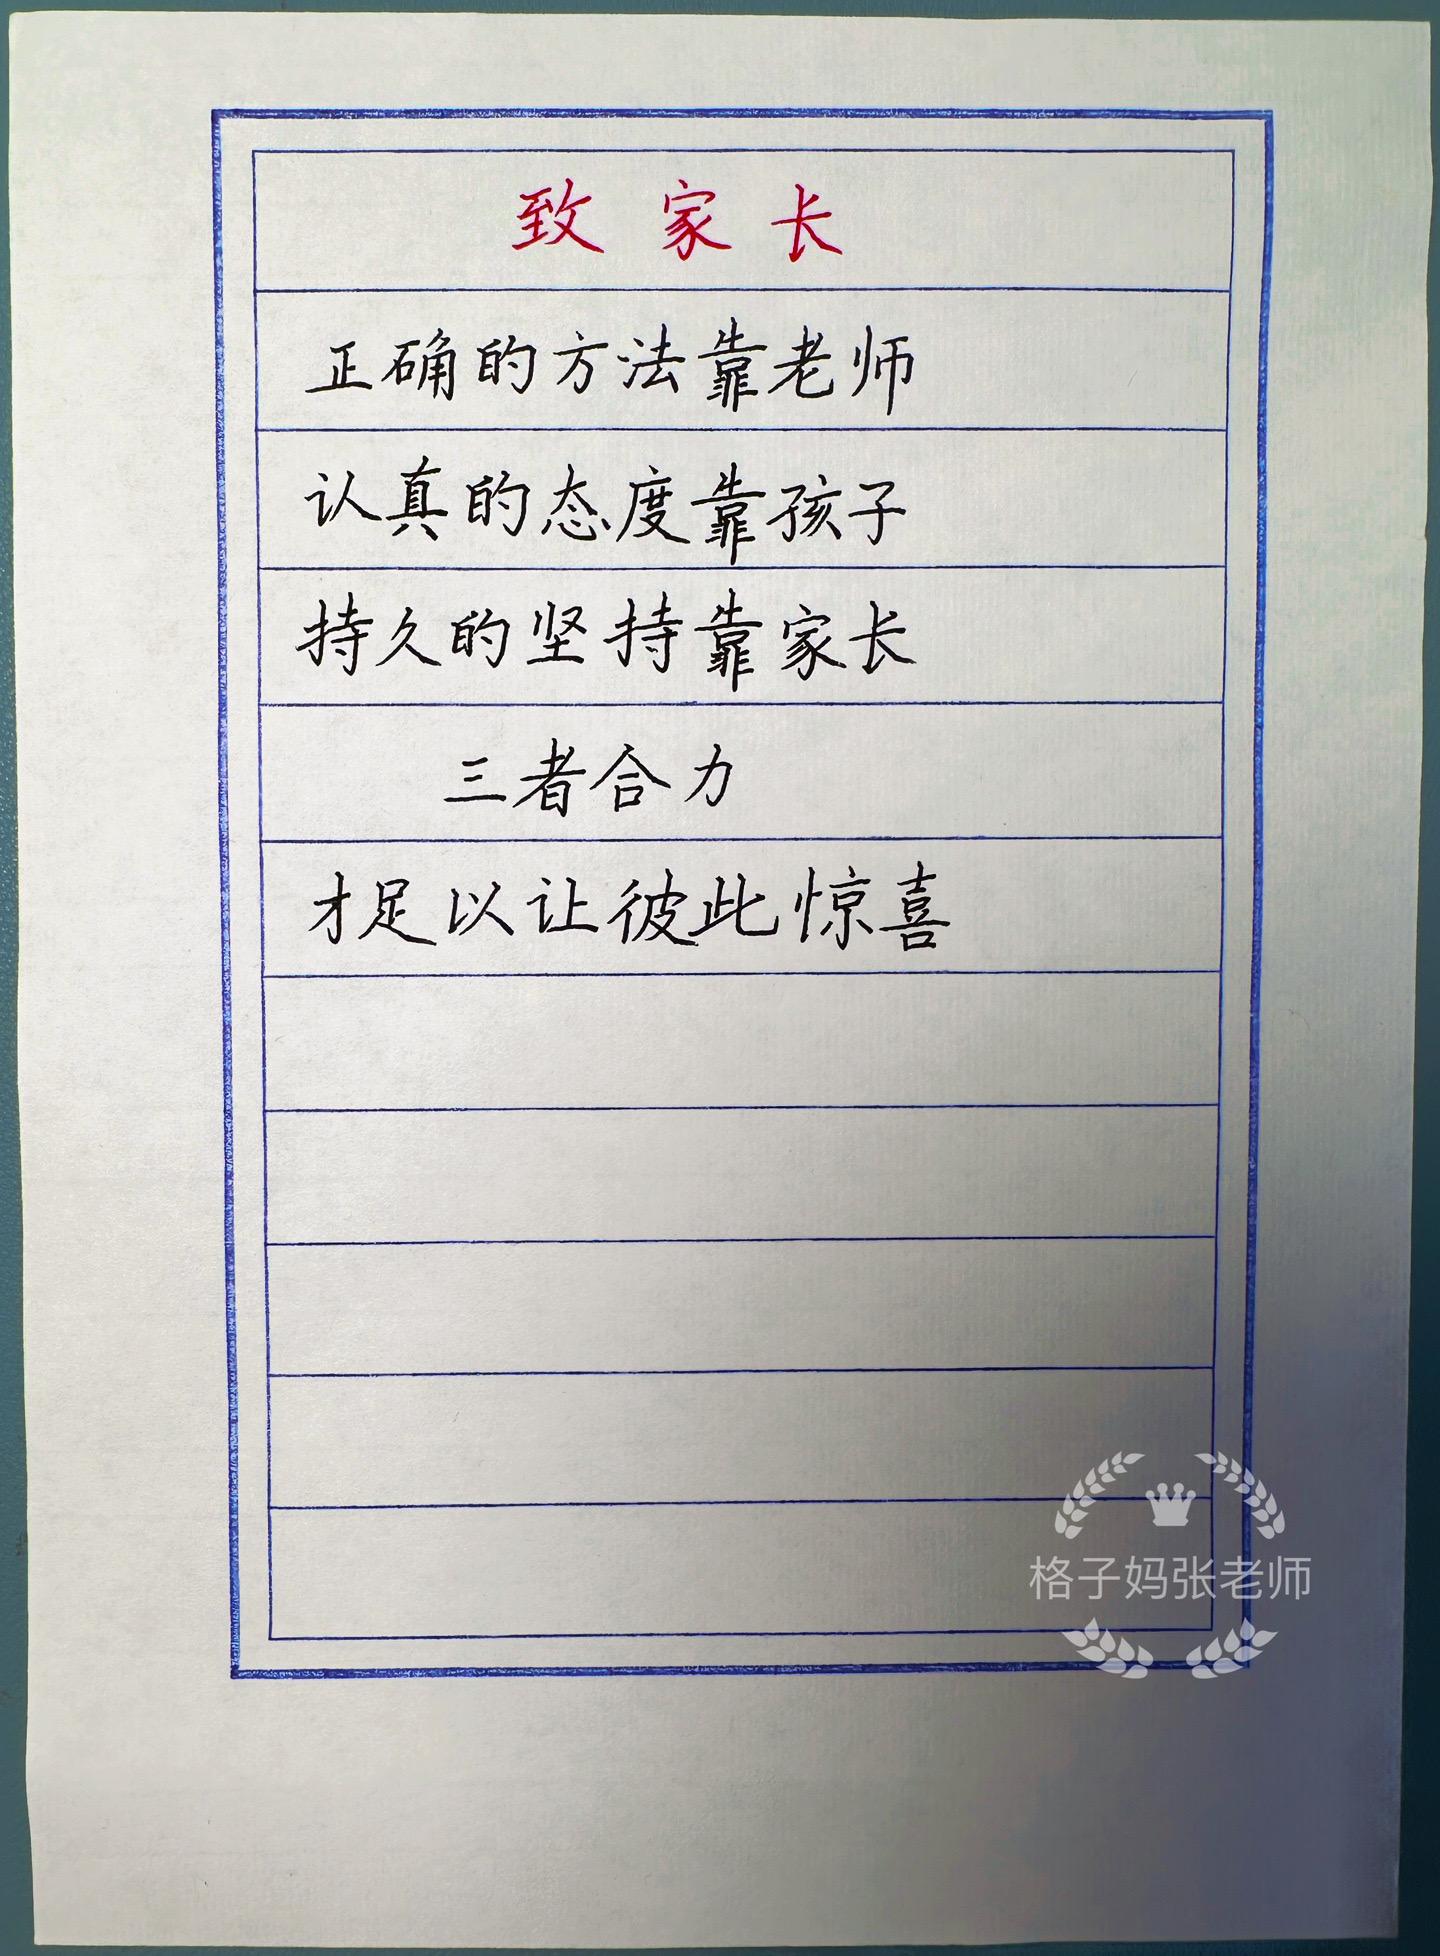 致家长
正确的方法靠老师
认真的态度靠孩子
持久的坚持靠家长
三者合力
才足以让彼此惊喜
格子妈张老师